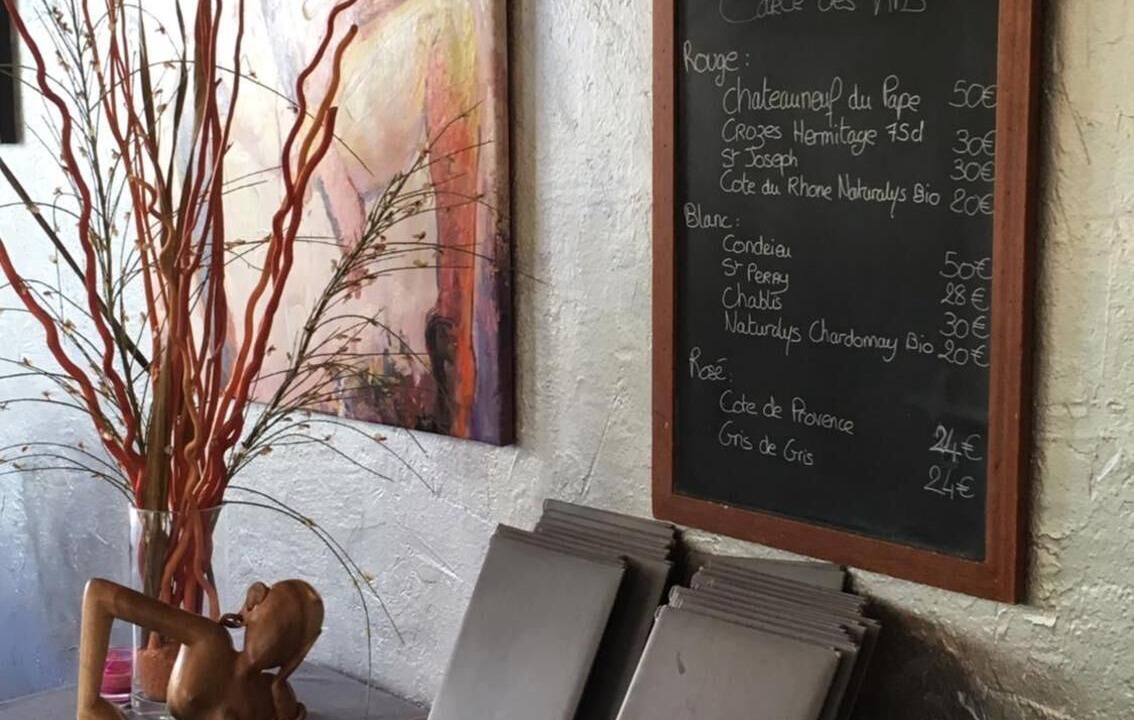 Carte des Vins
Rouge:
Chateauneuf du Pape 50€
Crozes Hermitage 75cl 30€
St Joseph 30€
Cote du Rhone Naturalys Bio 20€
Blanc:
Condrieu 50€
St PERAY 28€
Chablis 30€
Naturalys Chardonnay Bio 20€
Rosé:
Cote de Provence 24€
Gris de Gris 24€